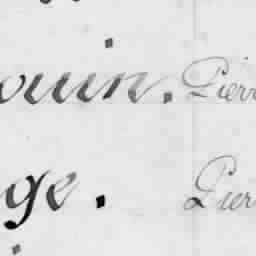 ouin. Pierr
ge. Pier